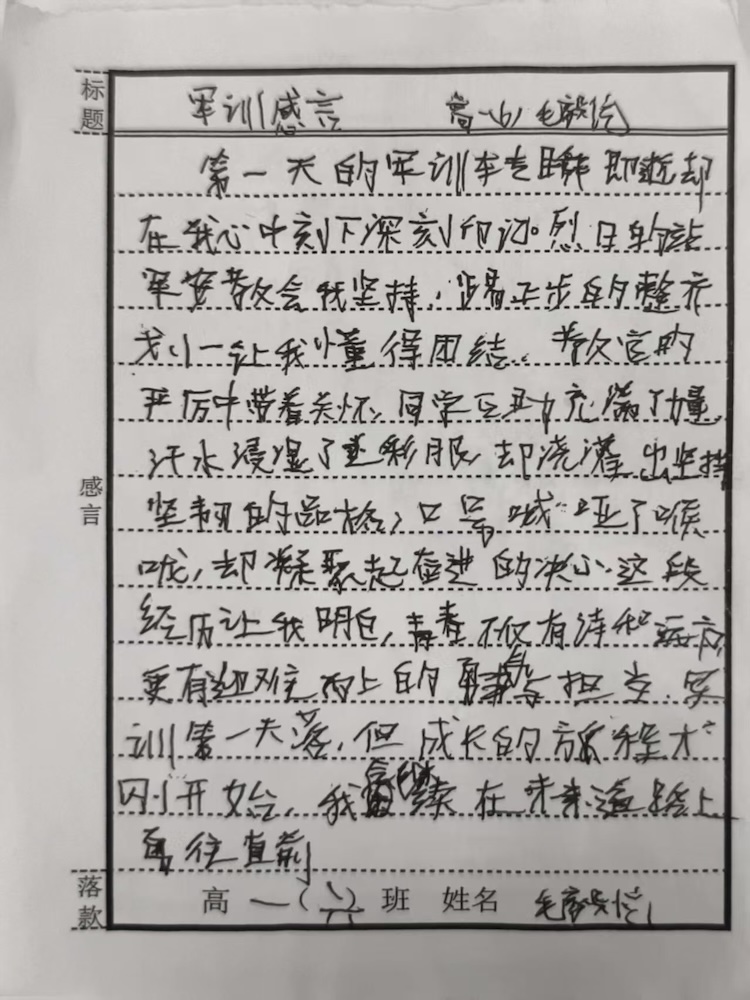 标题
军训感言 高一(6)毛毅
第一天的军训转瞬即逝却
在我心中刻下深刻印记。烈日的站
军姿教会我坚持,踢正步的整齐
划一让我懂得团结、教官的
严厉中带着关怀,同学互助充满力量,
汗水浸湿了迷彩服,却浇灌出坚持
坚韧的品格,口号喊哑了喉
咙,却凝聚起奋进的决心。这段
经历让我明白,青春不仅有诗和远方
更有迎难而上的勇气与担当.军
训第一天落,但成长的旅程才
刚开始,我会继续在未来道路上
勇往直前
感言
落款
高一(六)班 姓名 毛毅